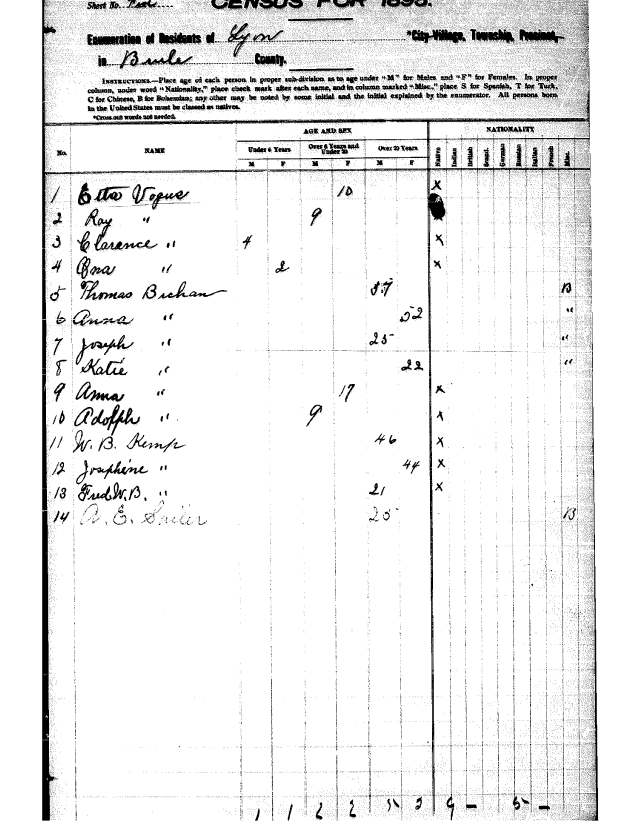 Sheet No.
CENSUS FOR 1895.
Enumeration of Residents of Lyon *City-Village, Township, Precinct,
in Brule County.
INSTRUCTIONS.—Place age of each person in proper sub-division as to age under "M" for Males and "F" for Females. In proper
column, under word "Nationality," place check mark after each name, and in column marked "Misc.," place S for Spanish, T for Turk,
C for Chinese, B for Bohemian; any other may be noted by some initial and the initial explained by the enumerator. All persons born
in the United States must be classed as natives.
*Cross out words not needed.
No. NAME AGE AND SEX NATIONALITY
Under 6 Years Over 6 Years and Under 20 Over 20 Years
M F M F M F Native Indian British Scand. German Russian Italian French Misc.
1 Etta Vogus 10 x
2 Ray " 9
3 Clarance " 4 x
4 Ona " 2 x
5 Thomas Bichan 57 B
6 Anna " 52 "
7 Joseph " 25 "
8 Katie " 22 "
9 Anna " 17 x
10 Adolph " 9 x
11 W. B. Kemp 46 x
12 Josephine " 44 x
13 Fred W. B. " 21 x
14 A. E. Sailer 25 B
1 1 2 2 5 3 9 – 5 –